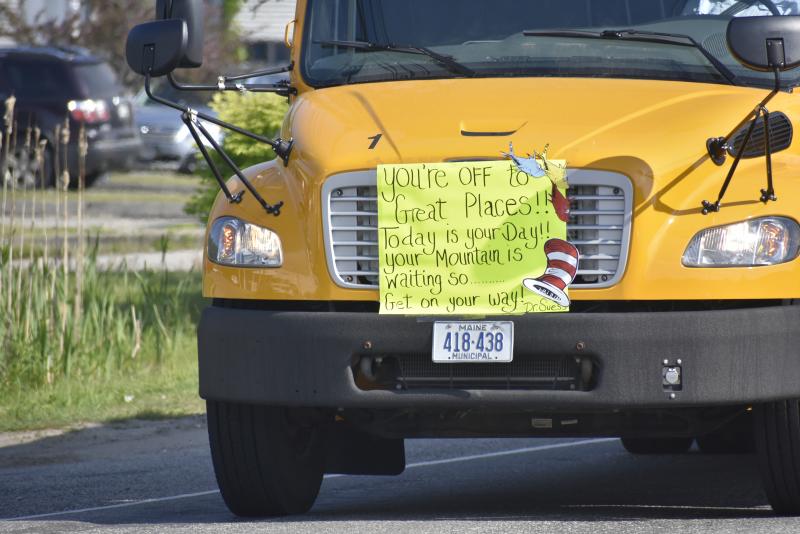 1
You're OFF to
Great Places!!
Today is your Day!!
your Mountain is
waiting so..........
Get on your way!
Dr. Suess
MAINE
418-438
MUNICIPAL